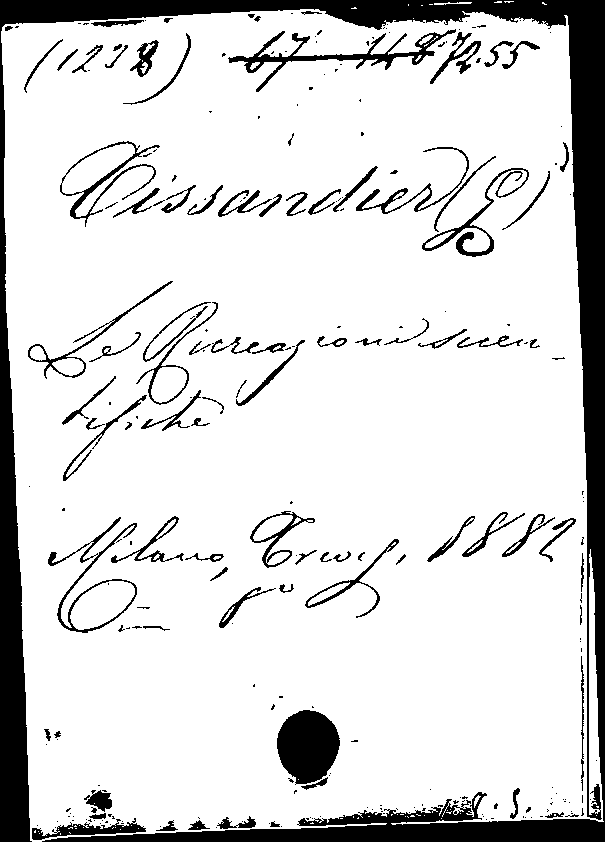 (1238) 67 148 72.55
Tissandier (G)
Le Ricreazioni scien-
tifiche
Milano, Treves, 1882
8º